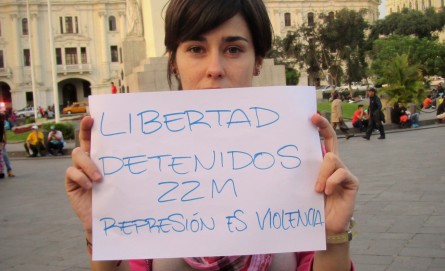 LIBERTAD
DETENIDOS
22M
REPRESIÓN ES VIOLENCIA